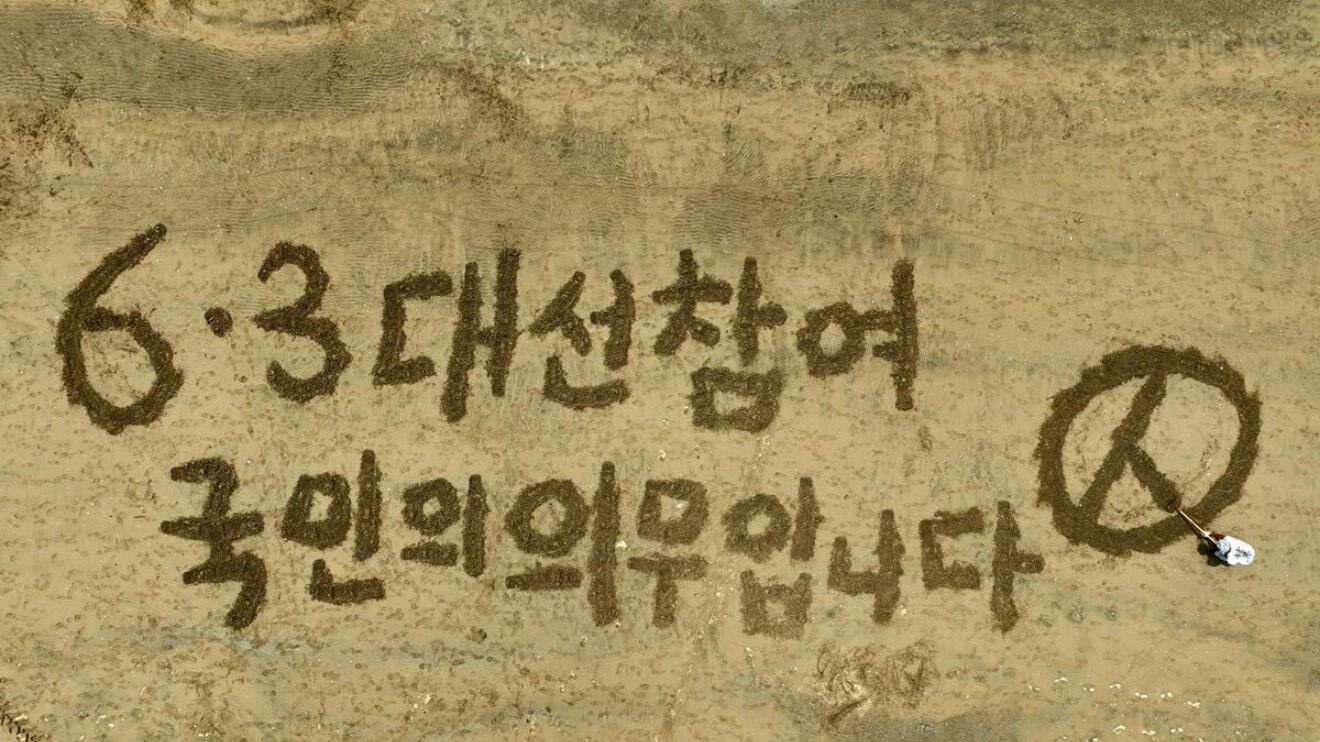 6·3 대선 참여
국민의 의무입니다